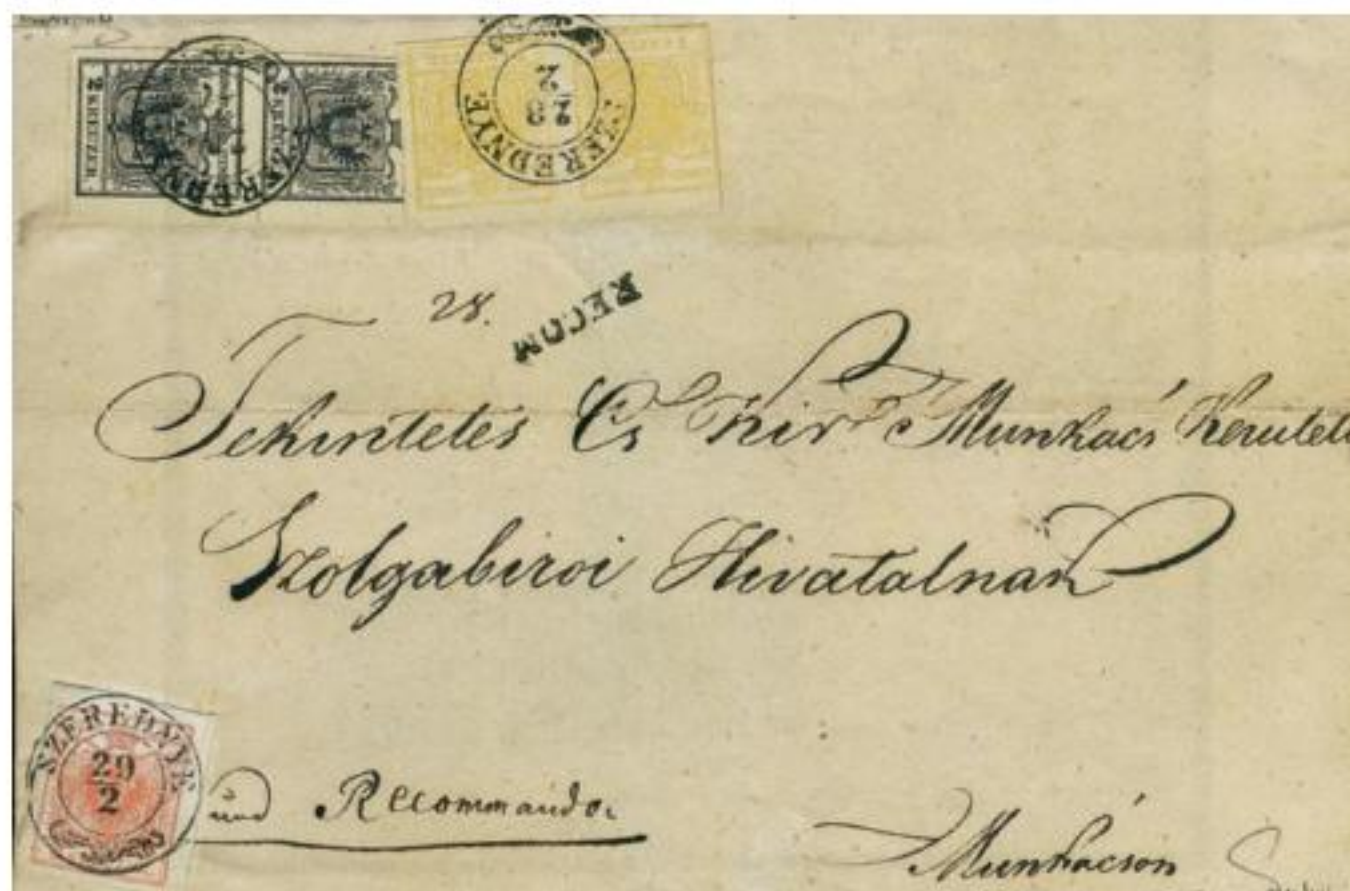 2 KREUZER
2 KREUZER
SZEREDNYE
SZEREDNYE
28
2
28.
RECOM
Tekintetes Cs Kir Munkács Kerületi
Szolgabiroi Hivatalnak
SZEREDNYE
29
2
und Recommando
Munkácson